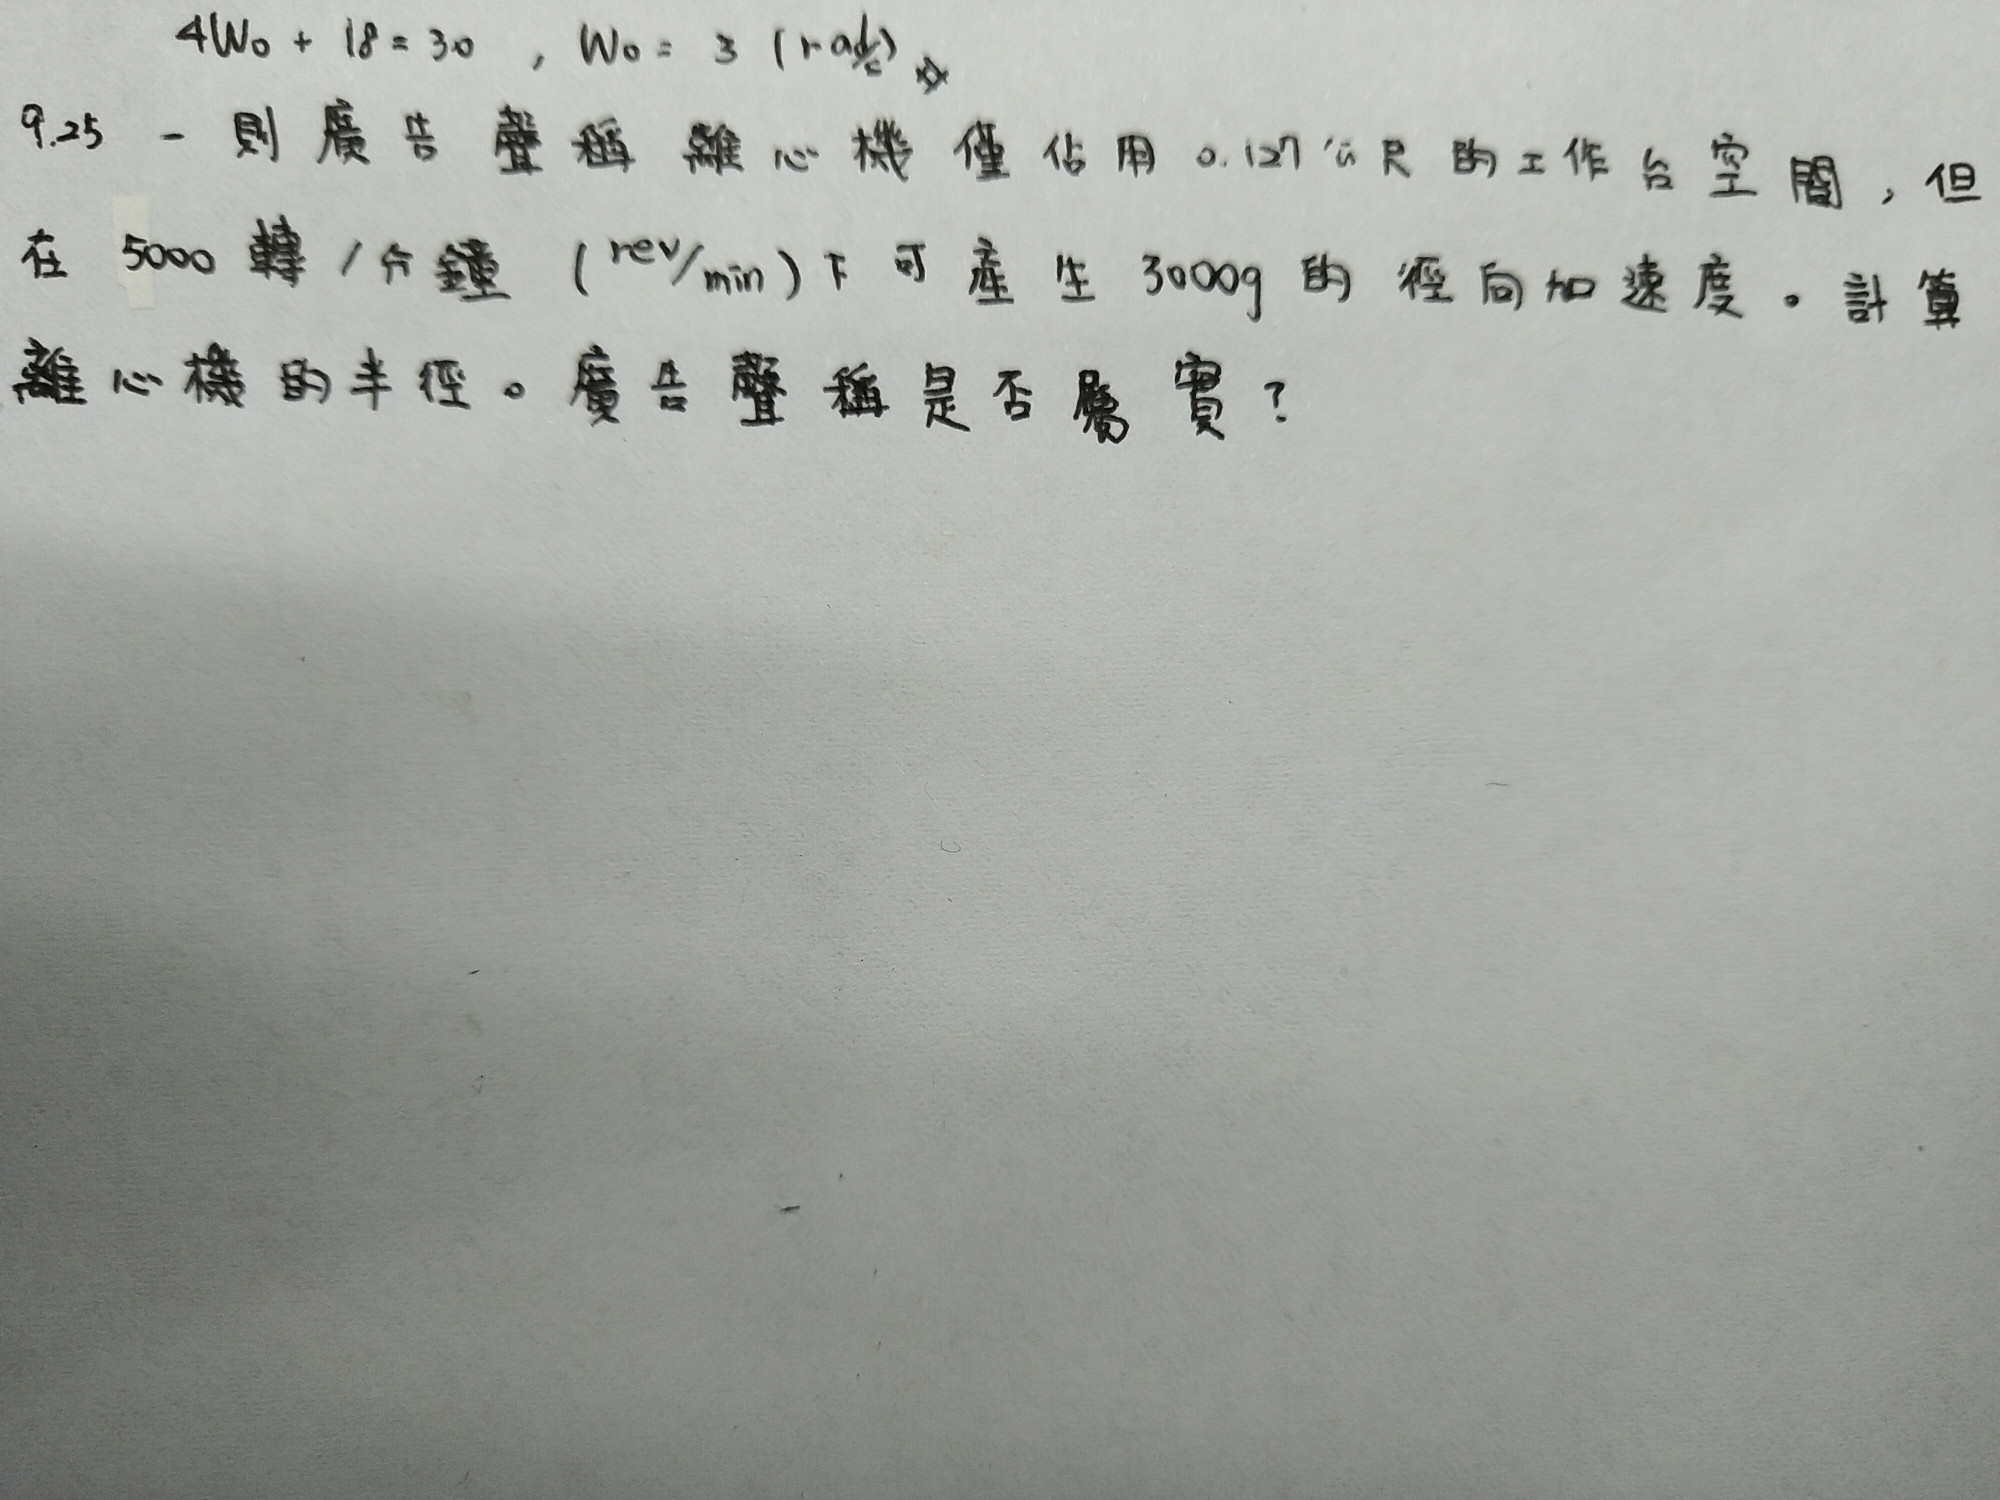 4W₀ + 18 = 30 , W₀ = 3 (rad/s)
9.25 一則廣告聲稱離心機僅佔用0.127公尺的工作台空間，但
在 5000 轉/分鐘 (rev/min)下可產生3000g的徑向加速度。計算
離心機的半徑。廣告聲稱是否屬實?